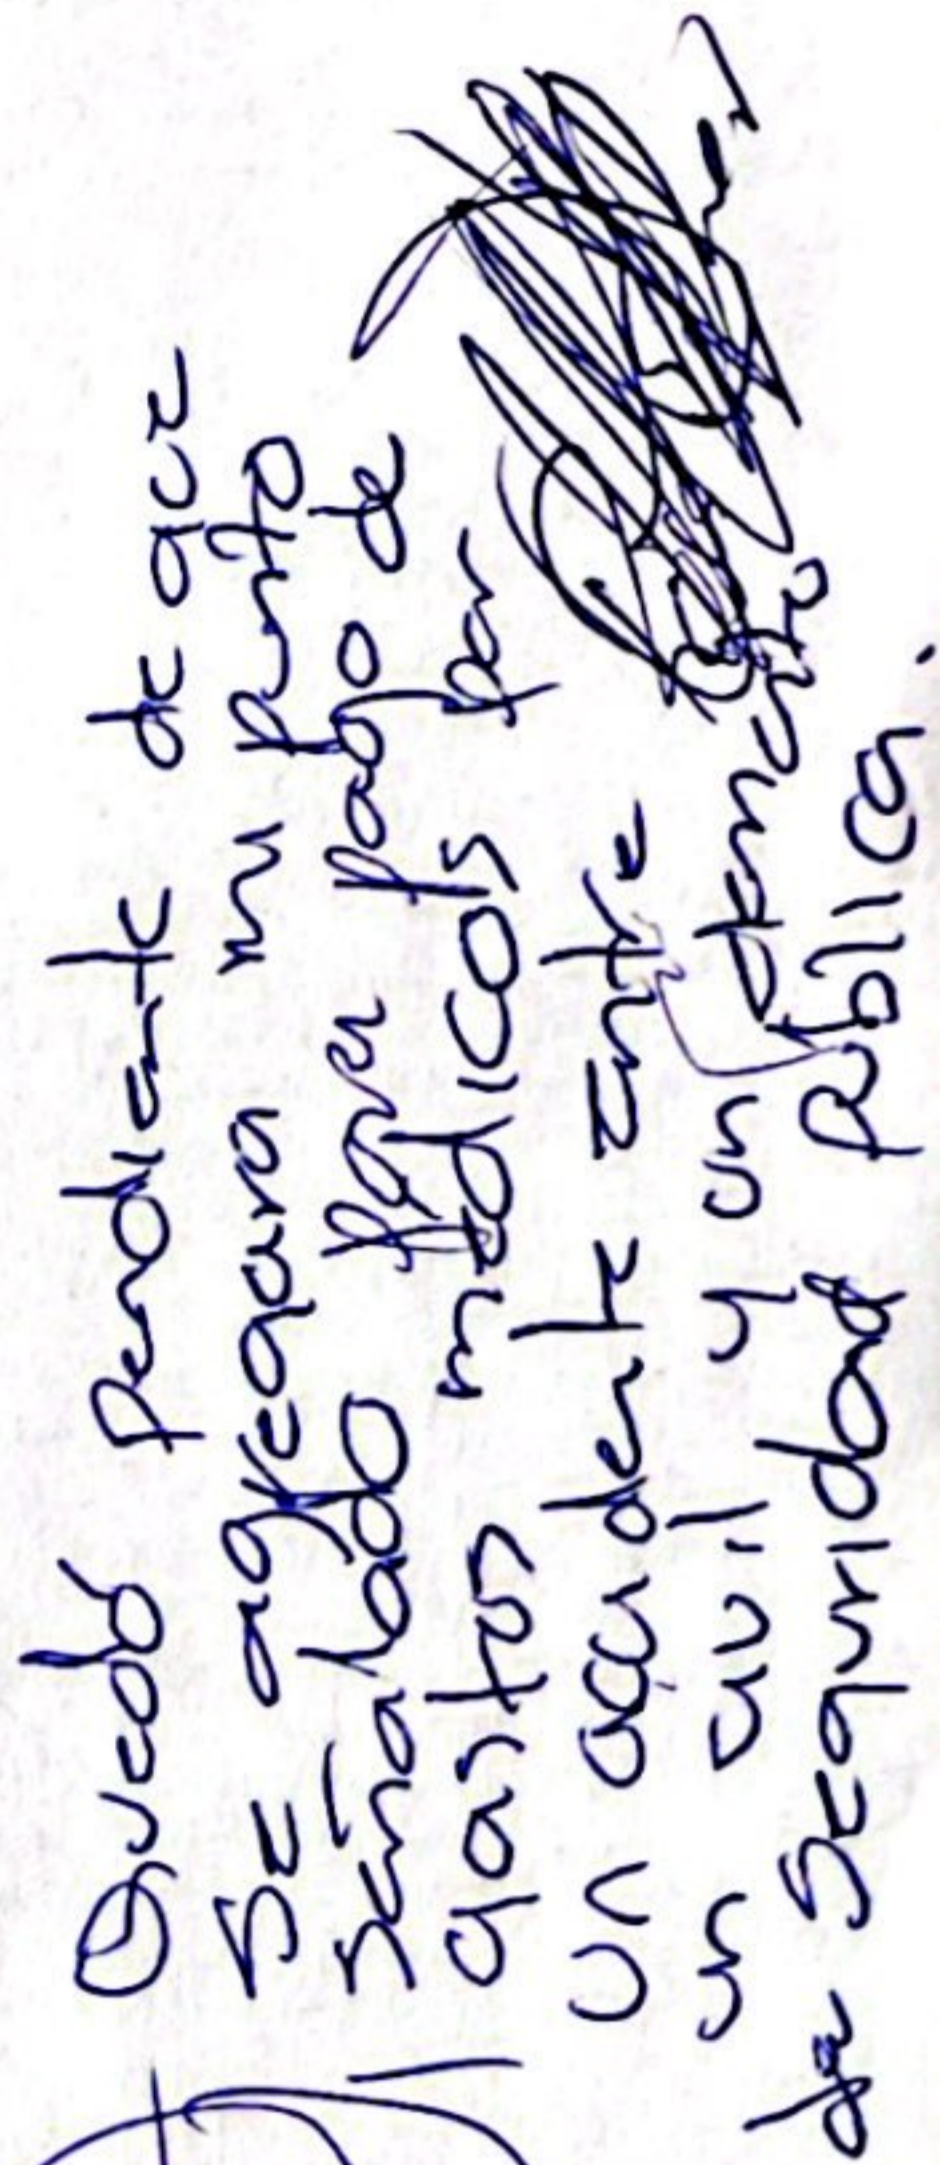 Quedó pendiente de que
se agregara mi punto
señalado para pago de
gastos médicos por
un accidente entre
un civil y un
de Seguridad Pública.